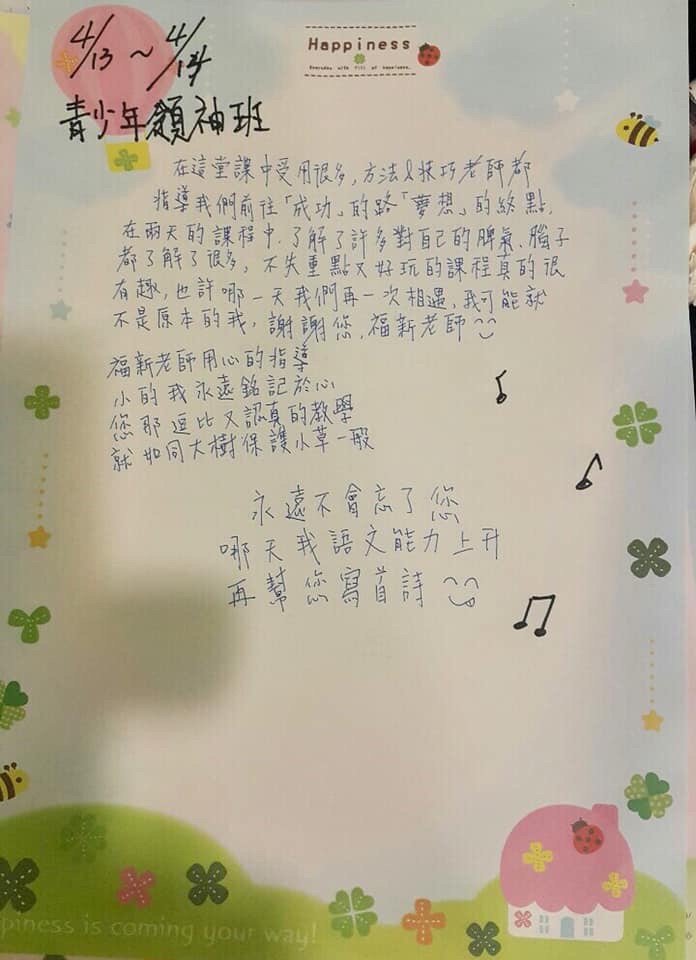 4/13～4/14
Happiness
Everyday with full of happiness.
青少年領袖班
在這堂課中受用很多,方法&技巧老師都
指導我們前往「成功」的路「夢想」的終點.
在兩天的課程中.了解了許多對自己的脾氣.腦子
都了解了很多,不失重點又好玩的課程真的很
有趣,也許哪一天我們再一次相遇,我可能就
不是原本的我,謝謝您,福新老師
福新老師用心的指導
小的我永遠銘記於心
您那逗比又認真的教學
就如同大樹保護小草一般
永遠不會忘了您
哪天我語文能力上升
再幫您寫首詩
piness is coming your way!